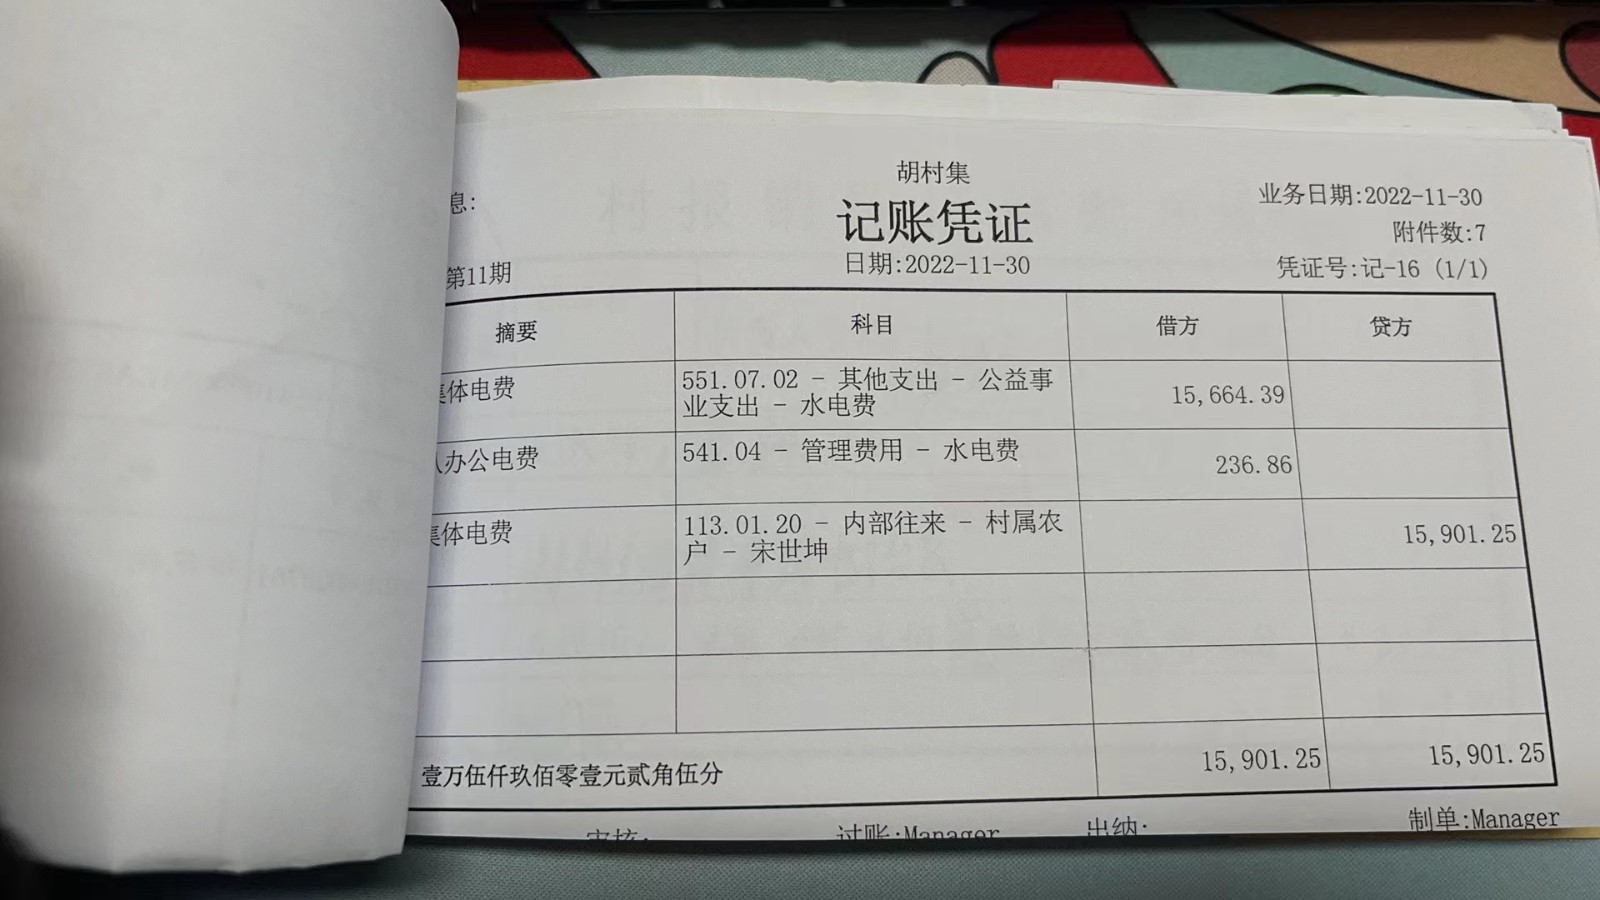 胡村集
息:
业务日期:2022-11-30
记账凭证
附件数:7
第11期
日期:2022-11-30
凭证号:记-16 (1/1)
摘要 科目 借方 贷方
集体电费 551.07.02 - 其他支出 - 公益事 15,664.39
业支出 - 水电费
办公电费 541.04 - 管理费用 - 水电费 236.86
集体电费 113.01.20 - 内部往来 - 村属农 15,901.25
户 - 宋世坤
壹万伍仟玖佰零壹元贰角伍分 15,901.25 15,901.25
审核: 过账:Manager 出纳: 制单:Manager